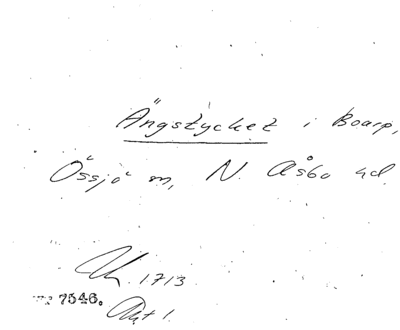 Ängstycket i Boarp,
Össjö m, N. Åsbo hd.
1713
7546.
Akt 1.